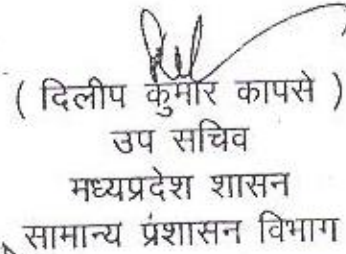 ( दिलीप कुमार कापसे )
उप सचिव
मध्यप्रदेश शासन
सामान्य प्रशासन विभाग